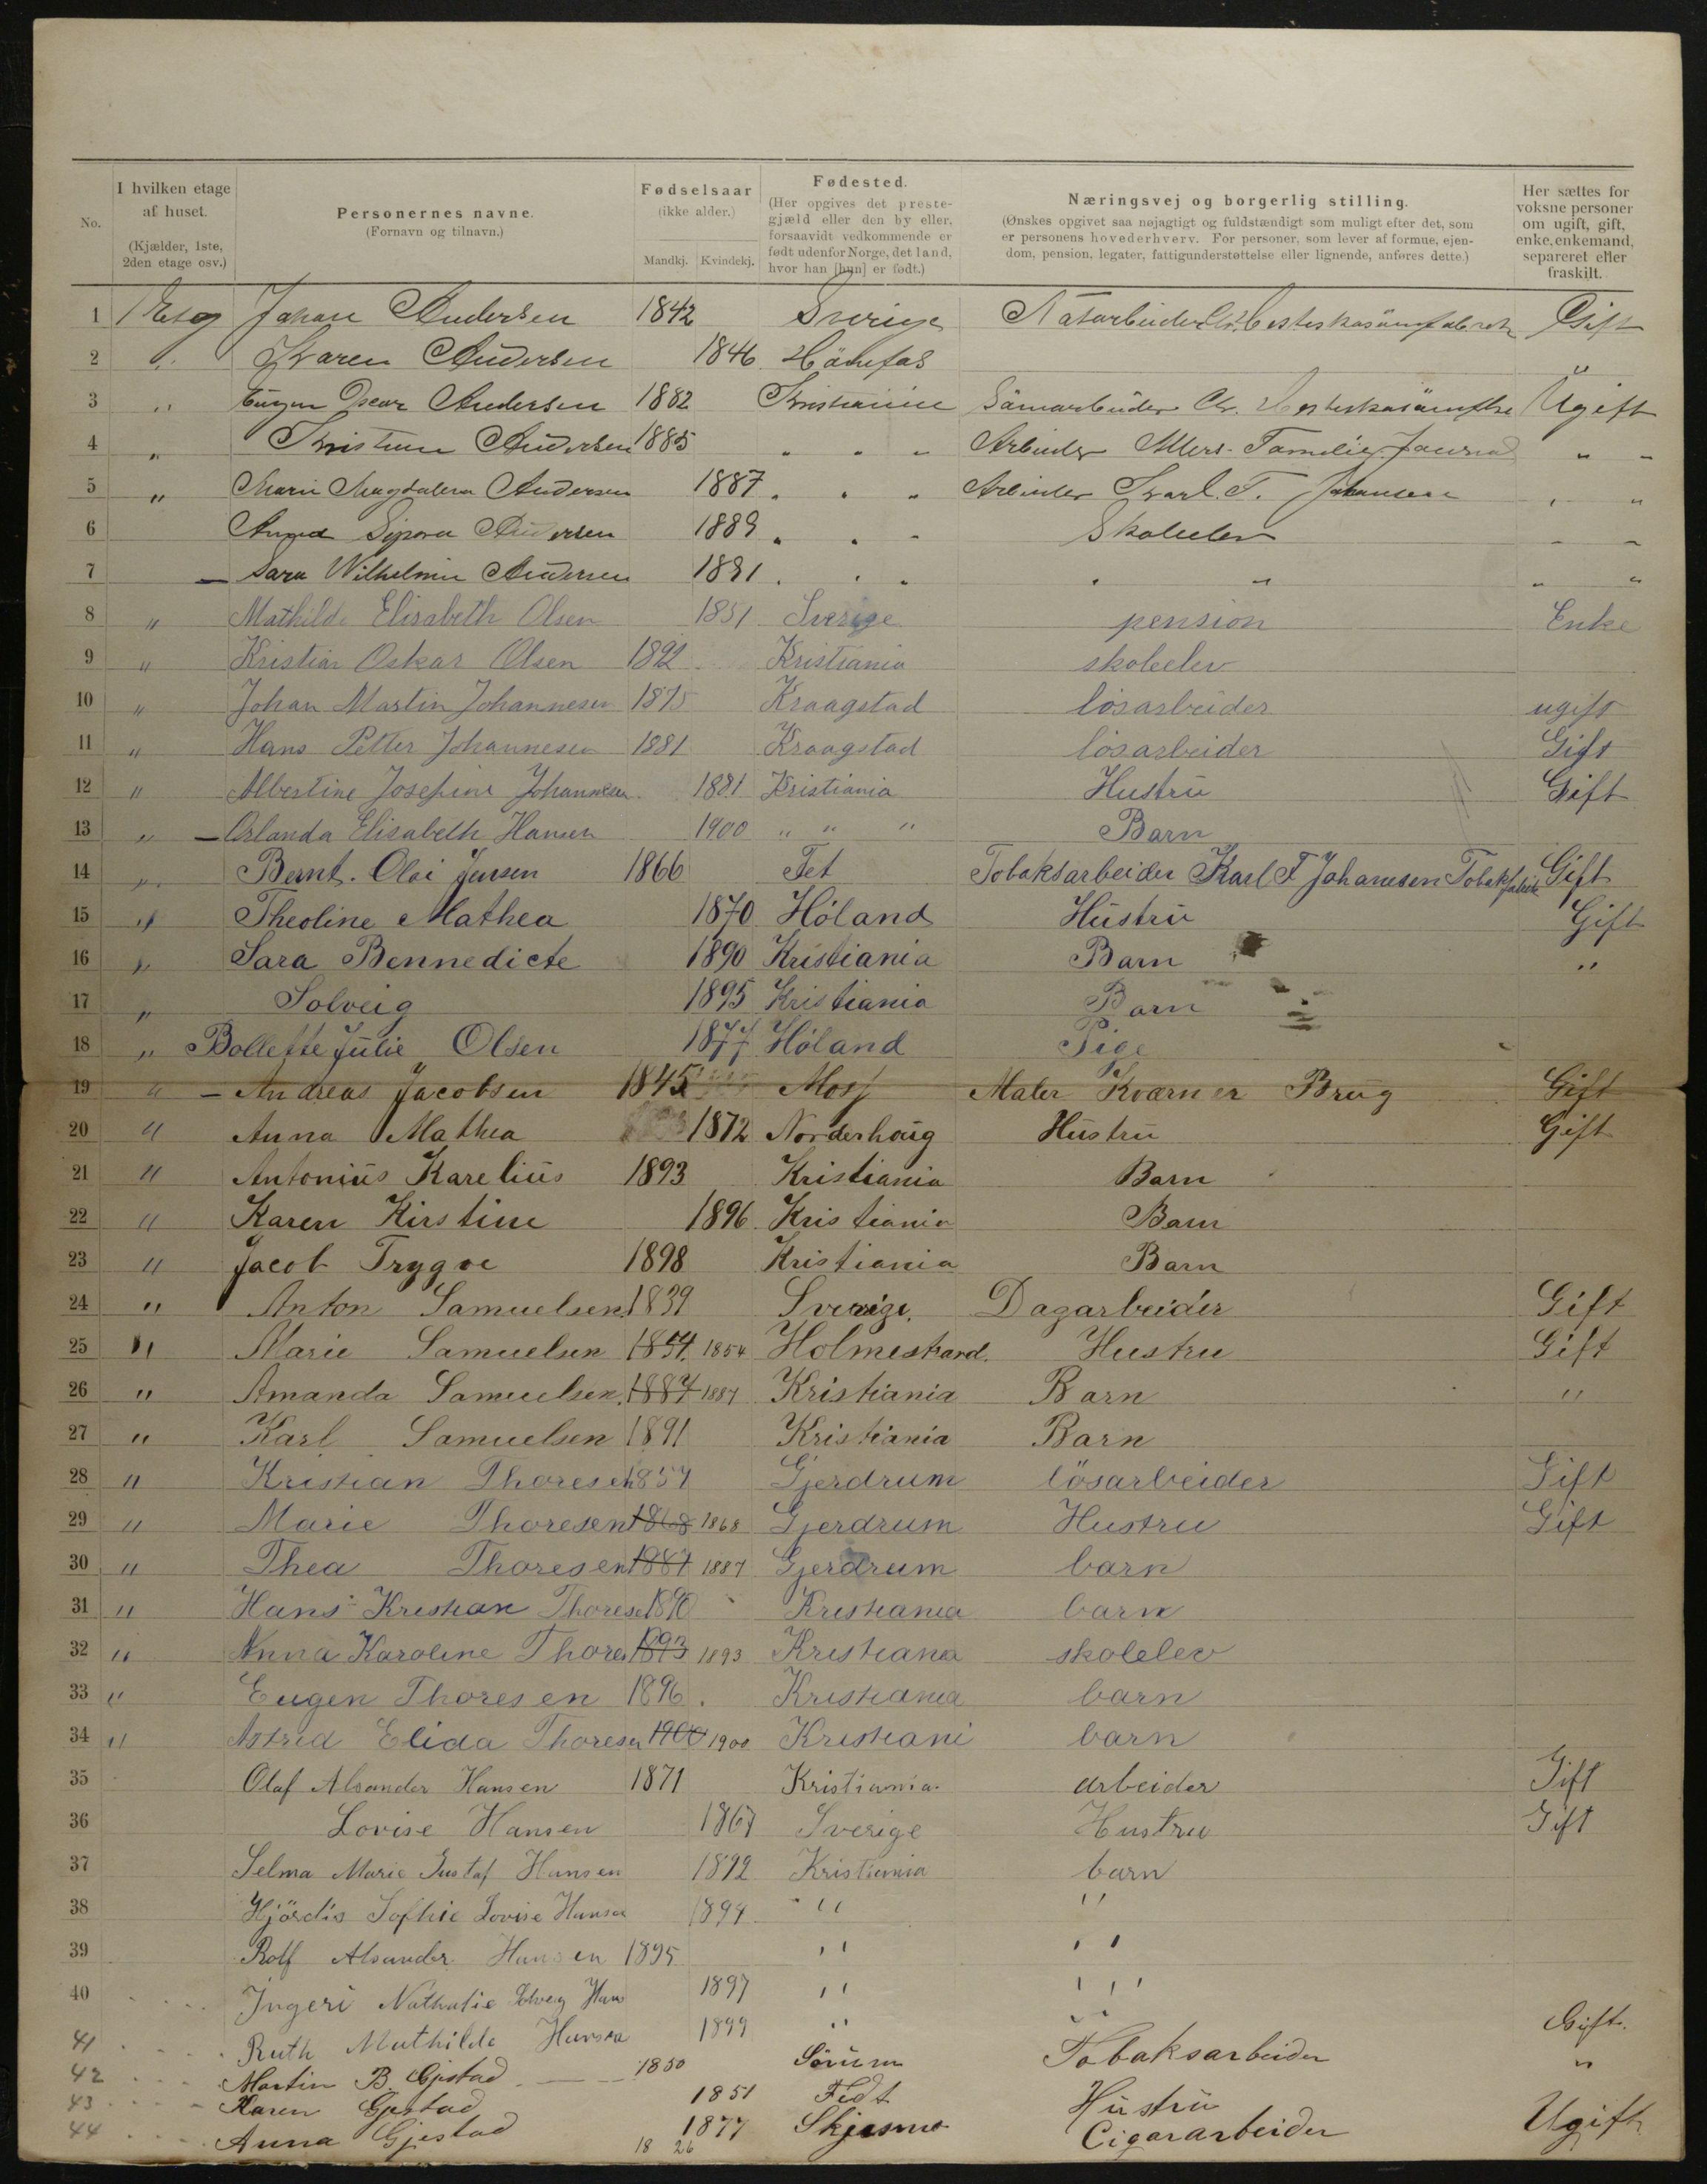 No.
I hvilken etage af huset.
(Kjælder, 1ste, 2den etage osv.)
Personernes navne.
(Fornavn og tilnavn.)
Fødselsaar
(ikke alder.)
Mandkj. Kvindekj.
Fødested.
(Her opgives det prestegjæld eller den by eller, forsaavidt vedkommende er født udenfor Norge, det land, hvor han [hun] er født.)
Næringsvej og borgerlig stilling.
(Ønskes opgivet saa nøjagtigt og fuldstændigt som muligt efter det, som er personens hovederhverv. For personer, som lever af formue, ejendom, pension, legater, fattigunderstøttelse eller lignende, anføres dette.)
Her sættes for voksne personer om ugift, gift, enke, enkemand, separeret eller fraskilt.
1 1 Etag Johan Andersen 1842 Sverige Gift
2 " Karen Andersen 1846 Hönefos
3 " Eugen Oscar Andersen 1882 Kristiania Ugift
4 " Andersen 1885 " " " Arbeider Allers Familie Journal " "
5 " Marie Magdalena Andersen 1887 " " " Arbeider Karl. F. Johansen " "
6 Andersen 1889 " " " Skoleelev " "
7 – Sara Wilhelmine Andersen 1891 " " " " " " "
8 " Mathilde Elisabeth Olsen 1851 Sverige pension Enke
9 " Kristian Oskar Olsen 1892 Kristiania skoleelev
10 " Johan Martin Johannesen 1875 Kraagstad lösarbeider ugift
11 " Hans Petter Johannesen 1881 Kraagstad lösarbeider Gift
12 " Albertine Josefine Johannesen 1881 Kristiania Hustru Gift
13 " – Orlanda Elisabeth Hansen 1900 " " " Barn
14 " Bernt. Olai Jensen 1866 Fet Tobaksarbeider Karl F Johannesen Tobakfabrik Gift
15 " Theoline Mathea 1870 Höland Hustru Gift
16 " Sara Bennedicte 1890 Kristiania Barn "
17 " Solveig 1895 Kristiania Barn
18 " Bollette Julie Olsen 1877 Höland Pige
19 " – Andreas Jacobsen 1845 Moss Maler Kværner Brug Gift
20 " Anna Mathea 1872 Norderhoug Hustru Gift
21 " Antonius Karelius 1893 Kristiania Barn
22 " Karen Kirstine 1896 Kristiania Barn
23 " Jacob Trygve 1898 Kristiania Barn
24 " Anton Samuelsen. 1839 Sverige. Dagarbeider Gift
25 " Marie Samuelsen 1854. 1854 Holmestrand. Hustru Gift
26 " Amanda Samuelsen. 1887 1887 Kristiania Barn "
27 " Karl Samuelsen 1891 Kristiania Barn
28 " Kristian Thoresen 1857 Gjerdrum lösarbeider Gift
29 " Marie Thoresen 1868 1868 Gjerdrum Hustru Gift
30 " Thea Thoresen 1887 1887 Gjerdrum barn
31 " Hans Kristian Thorese 1890 Kristiania barn
32 " Anna Karoline Thores 1893 1893 Kristiana skolelev
33 " Eugen Thoresen 1896. Kristiania barn
34 " Astrid Elida Thoresen 1900 1900 Kristiani barn
35 Olaf Alsander Hansen 1871 Kristiania. arbeider Gift
36 Lovise Hansen 1867 Sverige Hustru Gift
37 Selma Marie Gustaf Hansen 1892 Kristiania barn
38 Hjördis Sofhie Lovise Hansen 1894 " "
39 Rolf Alsander Hansen 1895 " "
40 Ingeri Nathalie Solveig Hans 1897 " "
41 Ruth Mathilde Hansen 1899 " "
42 Martin B. Gjestad 1850 Sörum Tobaksarbeider Gift.
43 Karen Gjestad 1851 Fedt Hustru "
44 Anna Gjestad 1877 Skjesmo Cigararbeider Ugift
18 26